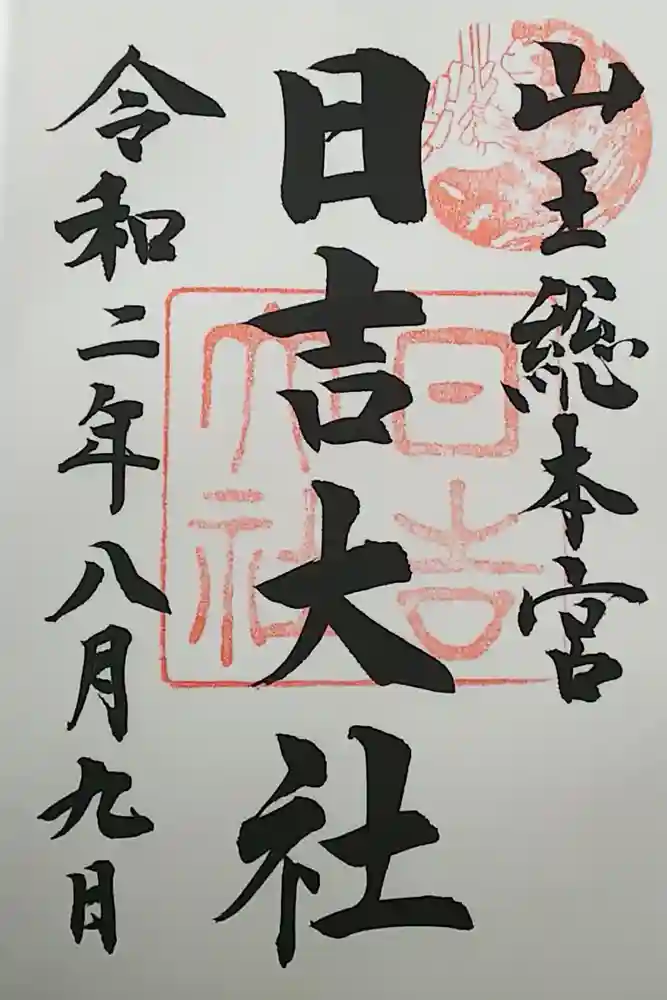 山王総本宮
日吉大社
令和二年八月九日
日吉
大社